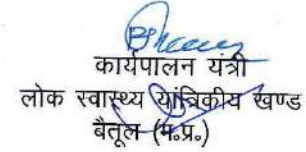 कार्यपालन यंत्री
लोक स्वास्थ्य यांत्रिकीय खण्ड
बैतूल (म.प्र.)